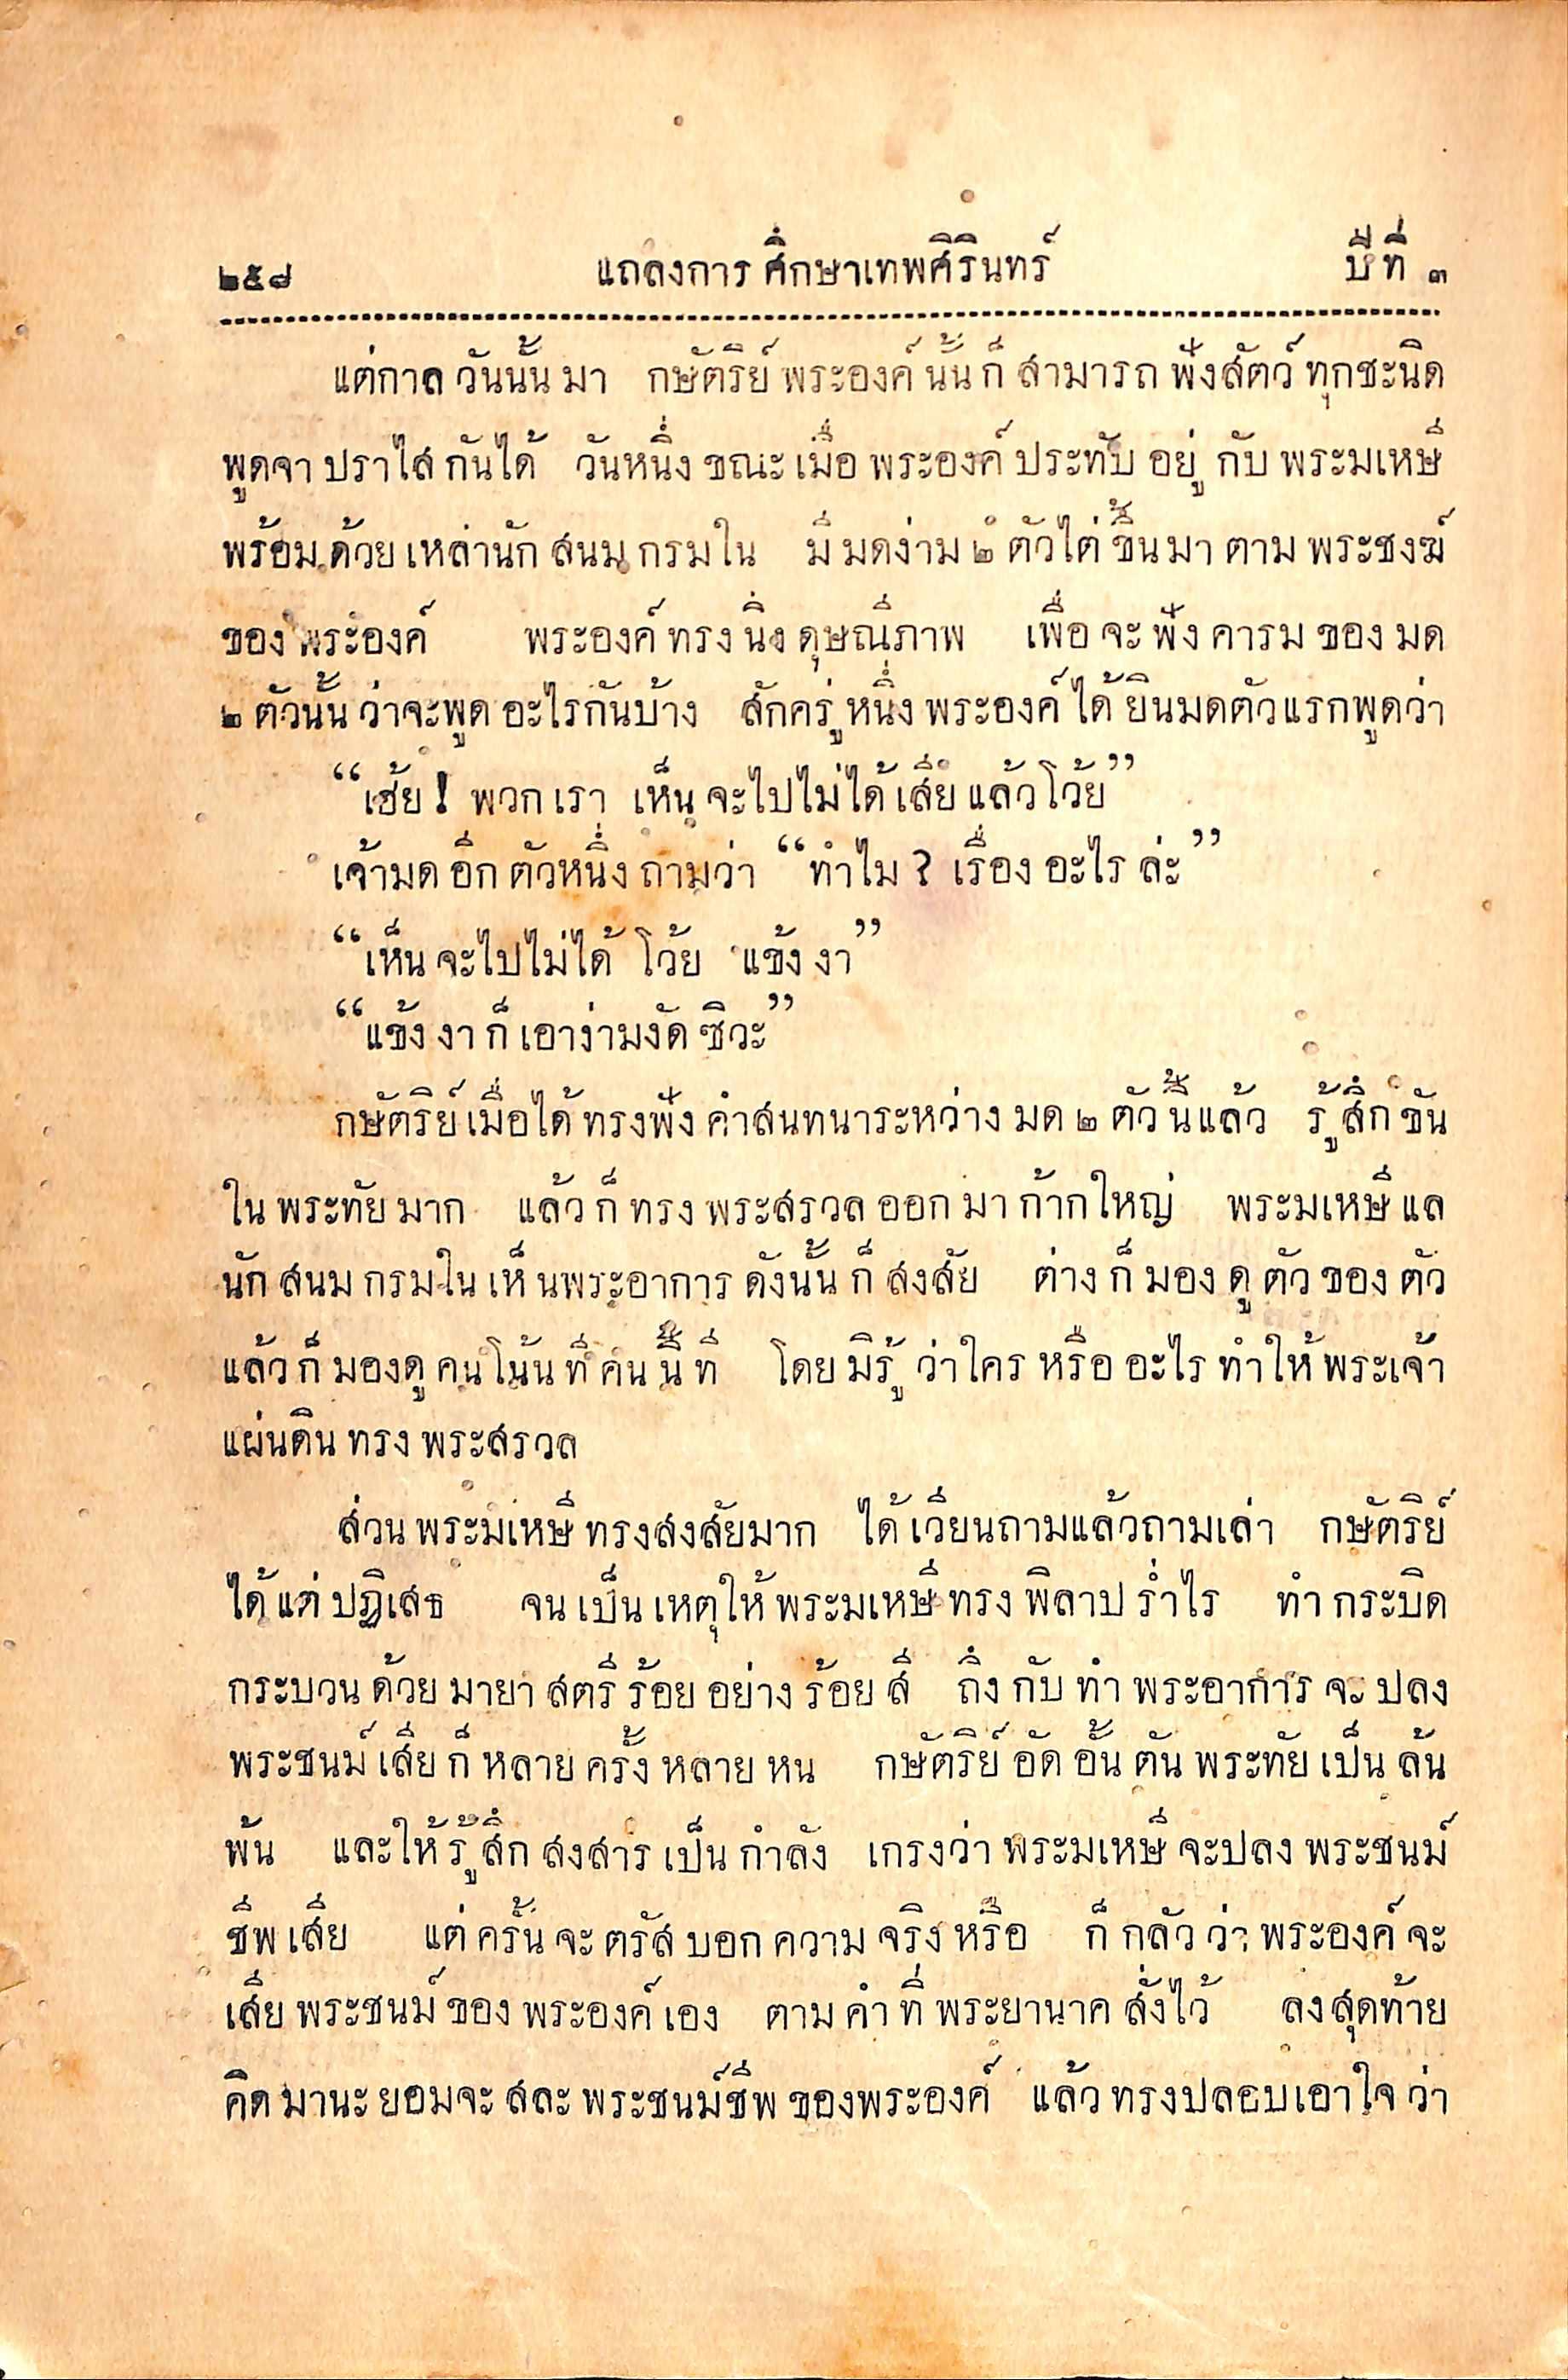 ๒๕๘ แถลงการศึกษาเทพศิรินทร์ ปีที่ ๓
แต่กาลวันนั้นมา กษัตริย์พระองค์นั้นก็สามารถฟังสัตว์ทุกชะนิด
พูดจาปราไสกันได้ วันหนึ่งขณะเมื่อพระองค์ประทับอยู่กับพระมเหษี
พร้อมด้วยเหล่านักสนมกรมใน มีมดง่าม ๒ ตัวไต่ขึ้นมาตามพระชงฆ์
ของพระองค์ พระองค์ทรงนิ่งดุษณีภาพ เพื่อจะฟังคารมของมด
๒ ตัวนั้นว่าจะพูดอะไรกันบ้าง สักครู่หนึ่งพระองค์ได้ยินมดตัวแรกพูดว่า
“เฮ้ย! พวกเรา เห็นจะไปไม่ได้เสียแล้วโว้ย”
เจ้ามดอีกตัวหนึ่งถามว่า “ทำไม? เรื่องอะไรล่ะ”
“เห็นจะไปไม่ได้โว้ย แข้งงา”
“แข้งงาก็เอาง่ามงัดซิวะ”
กษัตริย์เมื่อได้ทรงฟังคำสนทนาระหว่างมด ๒ ตัวนี้แล้ว รู้สึกขัน
ในพระทัยมาก แล้วก็ทรงพระสรวลออกมาก้ากใหญ่ พระมเหษีแล
นักสนมกรมในเห็นพระอาการดังนั้นก็สงสัย ต่างก็มองดูตัวของตัว
แล้วก็มองดูคนโน้นทีคนนี้ที โดยมิรู้ว่าใครหรืออะไรทำให้พระเจ้า
แผ่นดินทรงพระสรวล
ส่วนพระมเหษีทรงสงสัยมาก ได้เวียนถามแล้วถามเล่า กษัตริย์
ได้แต่ปฏิเสธ จนเป็นเหตุให้พระมเหษีทรงพิลาปร่ำไร ทำกระบิด
กระบวนด้วยมายาสตรีร้อยอย่างร้อยสี ถึงกับทำพระอาการจะปลง
พระชนม์เสียก็หลายครั้งหลายหน กษัตริย์อัดอั้นตันพระทัยเป็นล้น
พ้น และให้รู้สึกสงสารเป็นกำลัง เกรงว่าพระมเหษีจะปลงพระชนม์
ชีพเสีย แต่ครั้นจะตรัสบอกความจริงหรือ ก็กลัวว่าพระองค์จะ
เสียพระชนม์ของพระองค์เอง ตามคำที่พระยานาคสั่งไว้ ลงสุดท้าย
คิดมานะยอมจะสละพระชนม์ชีพของพระองค์ แล้วทรงปลอบเอาใจว่า